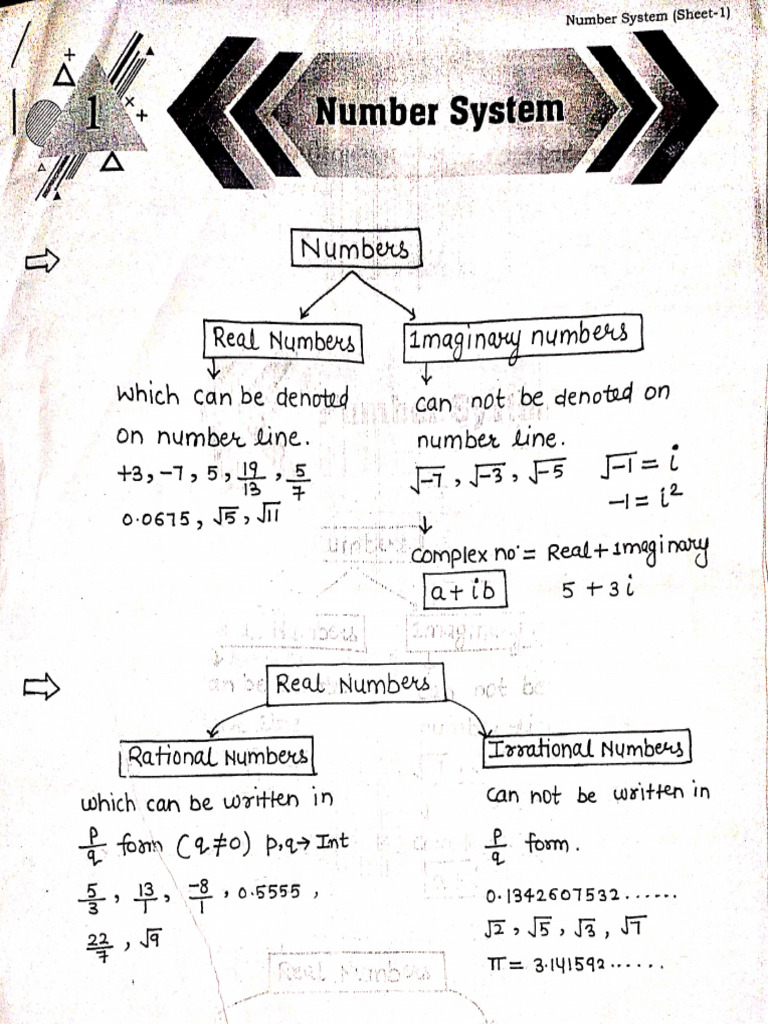 Number System (Sheet-1)
1
Number System
⇒ Numbers
Real Numbers
Imaginary numbers
which can be denoted
on number line.
+3, -7, 5, 19/13, 5/7
0.0675, √5, √11
can not be denoted on
number line.
√-7, √-3, √-5 √-1 = i
-1 = i²
complex no. = Real + Imaginary
a + ib 5 + 3i
⇒ Real Numbers
Rational Numbers
which can be written in
p/q form (q≠0) p,q→Int
5/3, 13/1, -8/1, 0.5555,
22/7, √9
Irrational Numbers
can not be written in
p/q form.
0.1342607532......
√2, √5, √3, √7
π = 3.141592......